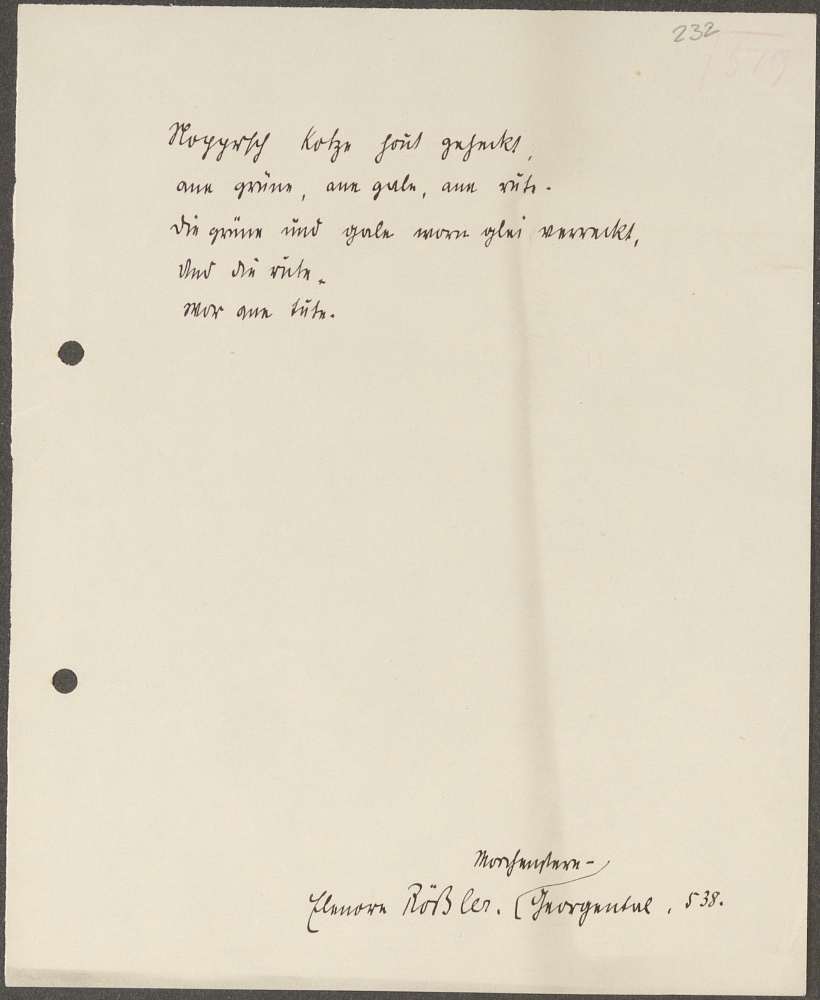 232
579
Noppersch Kotze hout geheckt,
ane grüne, ane gale, ane rute.
die grüne und gale worn glei verreckt,
Und die rute.
wor ane tute.
Morchenstern-
Elenore Rößler. (Georgental, 538.